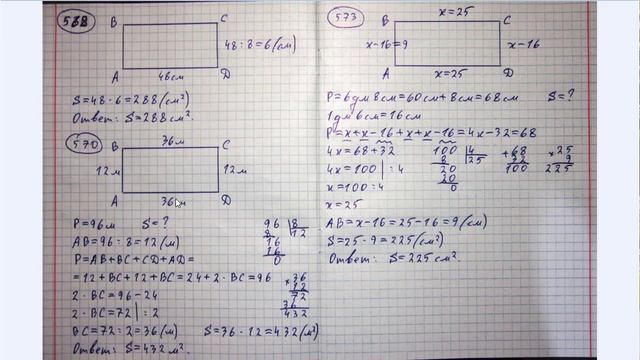 568
B C
48:8=6(см)
A 48см D
S=48·6=288(см²)
Ответ: S=288см²
570
36м
B C
12м 12м
A 36м D
P=96м S=?
AB=96:8=12(м)
P=AB+BC+CD+AD=
=12+BC+12+BC=24+2·BC=96
2·BC=96-24
2·BC=72|:2
BC=72:2=36(м) S=36·12=432(м²)
Ответ: S=432м²
96|8
8 12
16
16
0
×36
12
72
36
432
573
x=25
B C
x-16=9 x-16
A x=25 D
P=6дм 8см=60см+8см=68см S=?
1дм 6см=16см
P=x+x-16+x+x-16=4x-32=68
4x=68+32
4x=100|:4
x=100:4
x=25
100|4
8 25
20
20
0
+68
32
100
×25
9
225
AB=x-16=25-16=9(см)
S=25·9=225(см²)
Ответ: S=225см²